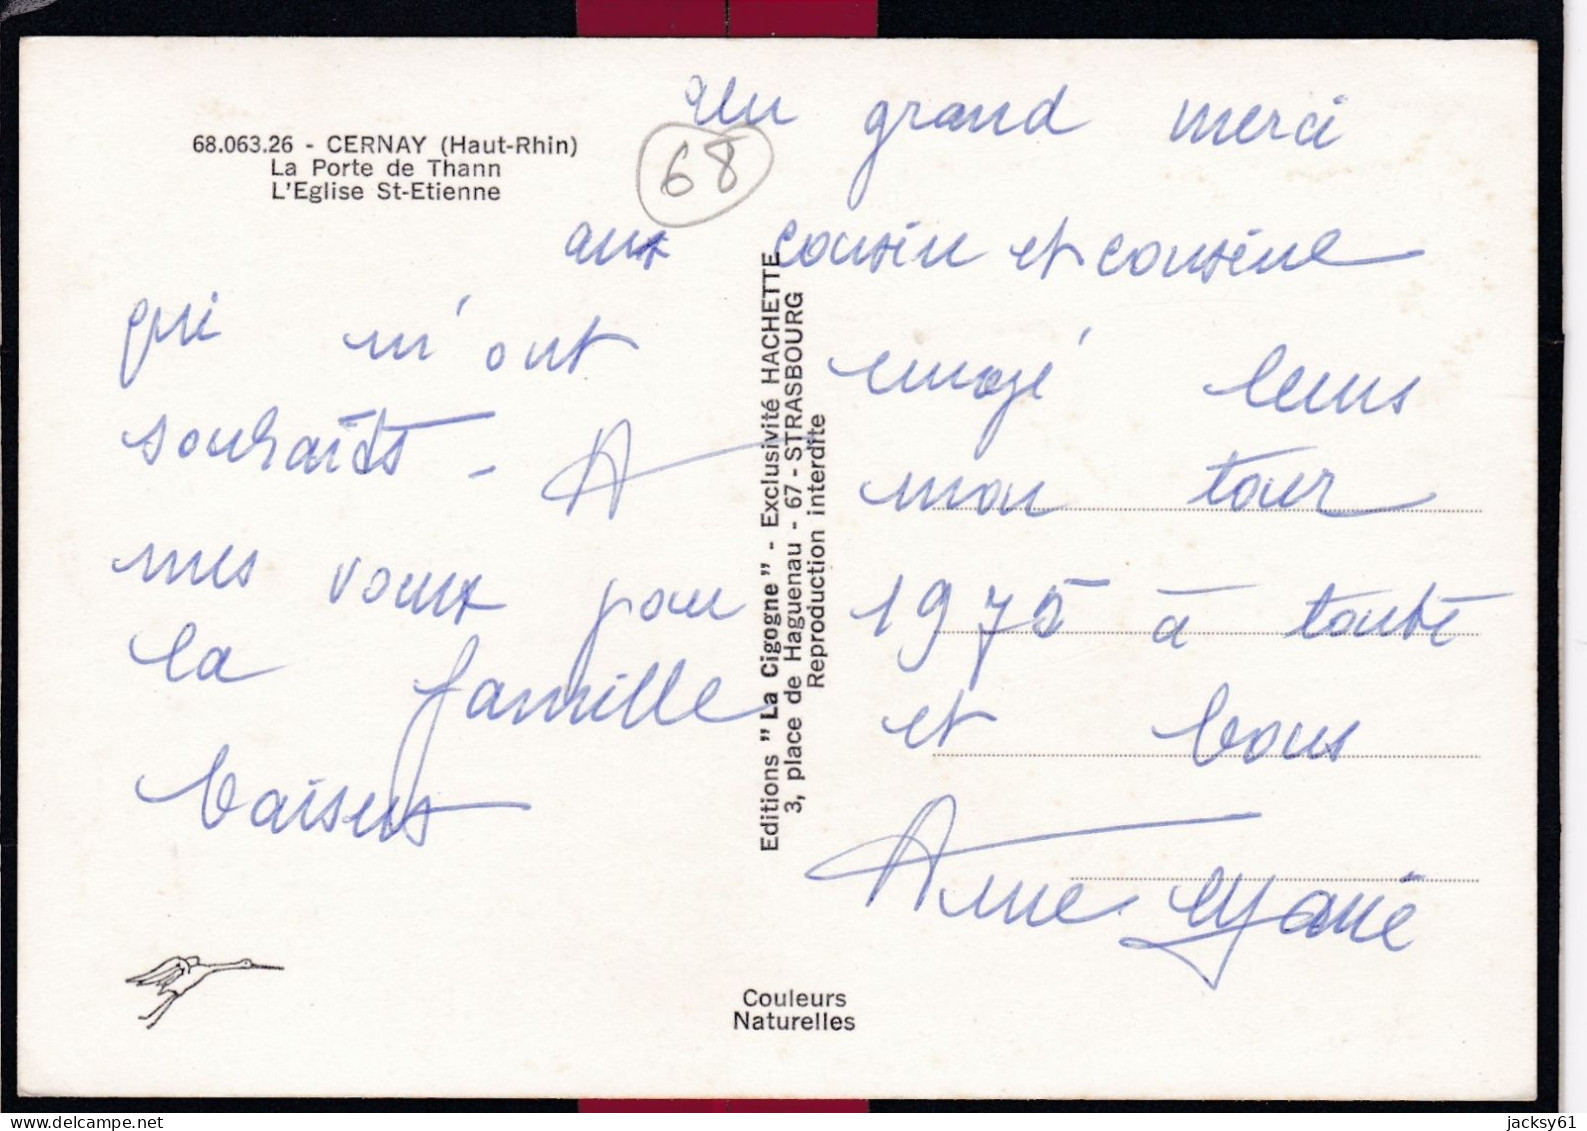 68.063.26 - CERNAY (Haut-Rhin)
La Porte de Thann
L'Eglise St-Etienne
68
Un grand merci
aux cousin et cousine
qui m'ont envoyé leurs
souhaits - A mon tour
mes voeux pour 1975 à toute
la famille et bons
baisers
Anne Marie
Editions "La Cigogne" - Exclusivité HACHETTE
3, place de Haguenau - 67 - STRASBOURG
Reproduction interdite
Couleurs
Naturelles
jacksy61